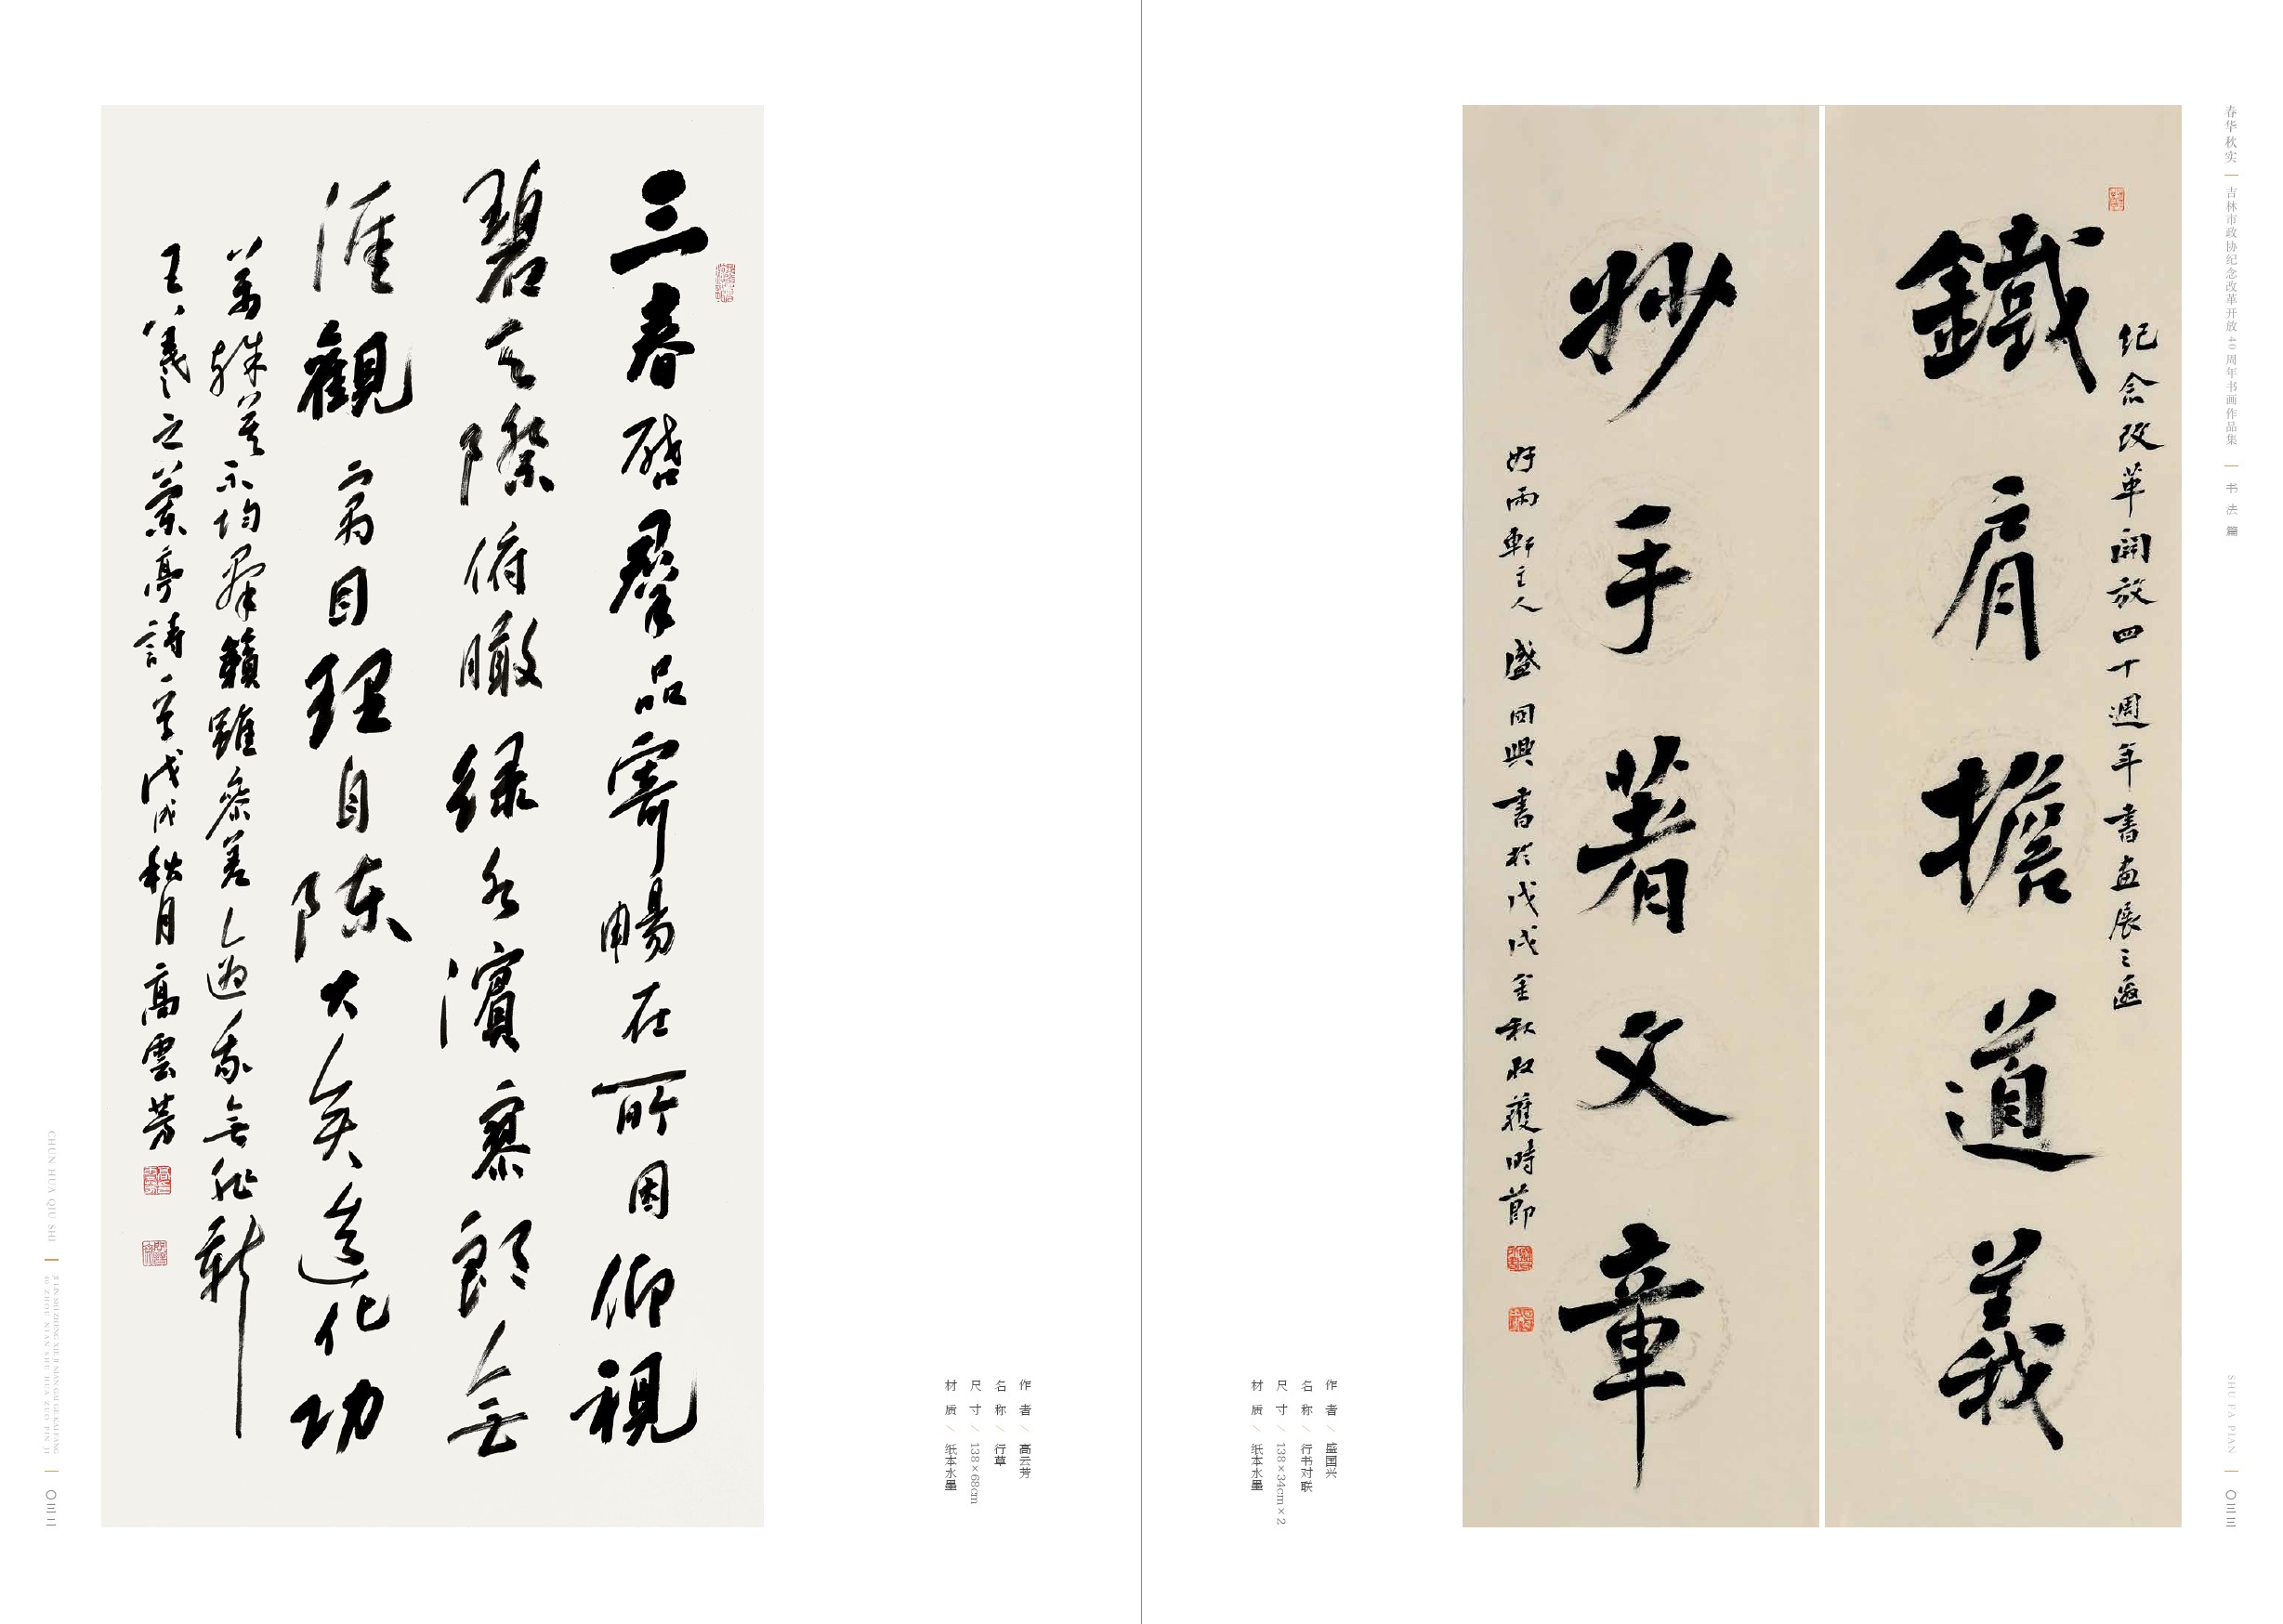 三春啓羣品寄暢在所因仰視
碧天際俯瞰緑水濱寥朗無
涯觀寓目理自陳大矣造化功
萬殊莫不均羣籟雖參差適我無非新
王羲之蘭亭詩一首戊戌秋月高雲芳
作者／高云芳
名称／行草
尺寸／138×68cm
材质／纸本水墨
CHUN HUA QIU SHI
JI LIN SHI ZHENG XIE JI NIAN GAI GE KAI FANG
40 ZHOU NIAN SHU HUA ZUO PIN JI
〇三二
春华秋实
吉林市政协纪念改革开放40周年书画作品集
书法篇
紀念改革開放四十週年書畫展之邀
鐵肩擔道義
妙手著文章
好雨軒主人盛國興書於戊戌金秋收穫時節
作者／盛国兴
名称／行书对联
尺寸／138×34cm×2
材质／纸本水墨
SHU FA PIAN
〇三三